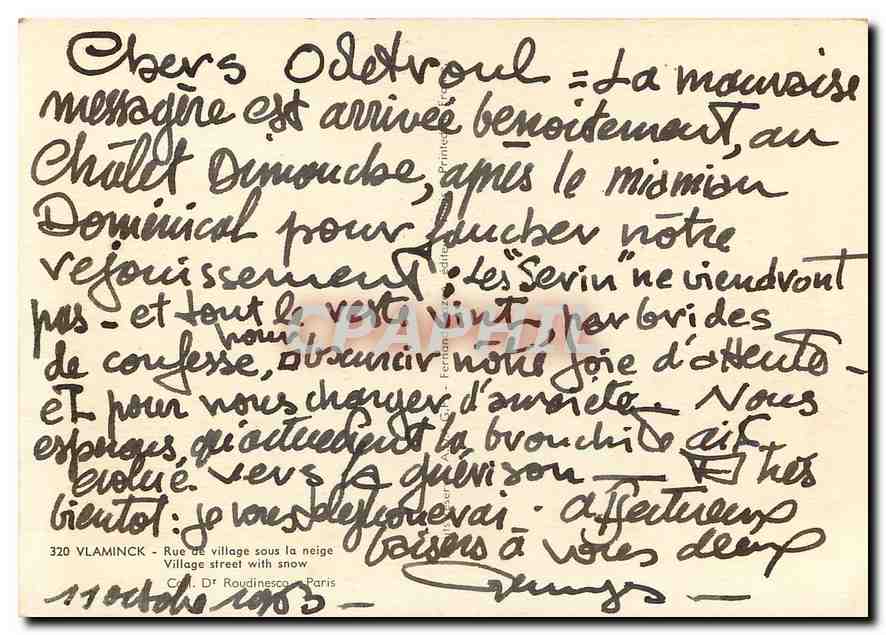 Chers Odetroul = La mauvaise
messagère est arrivée benoitement, au
Châlet Dimanche, après le miamiam
Dominical pour faucher nôtre
rejouissement : Les "Serin" ne viendront
pas - et tout le reste vint, par brides
de confesse, pour obscurcir nôtre joie d'attente -
et pour nous changer d'anxiété. Nous
espérons, qu'actuellement la bronchite ait
évolué vers la guérison — Et très
bientot : je vous telephonerai. affectueux
baisers à vous deux
320 VLAMINCK - Rue de village sous la neige
Village street with snow
Coll. Dr Roudinesco - Paris
11 octobre 1963 -
CPAPHIL